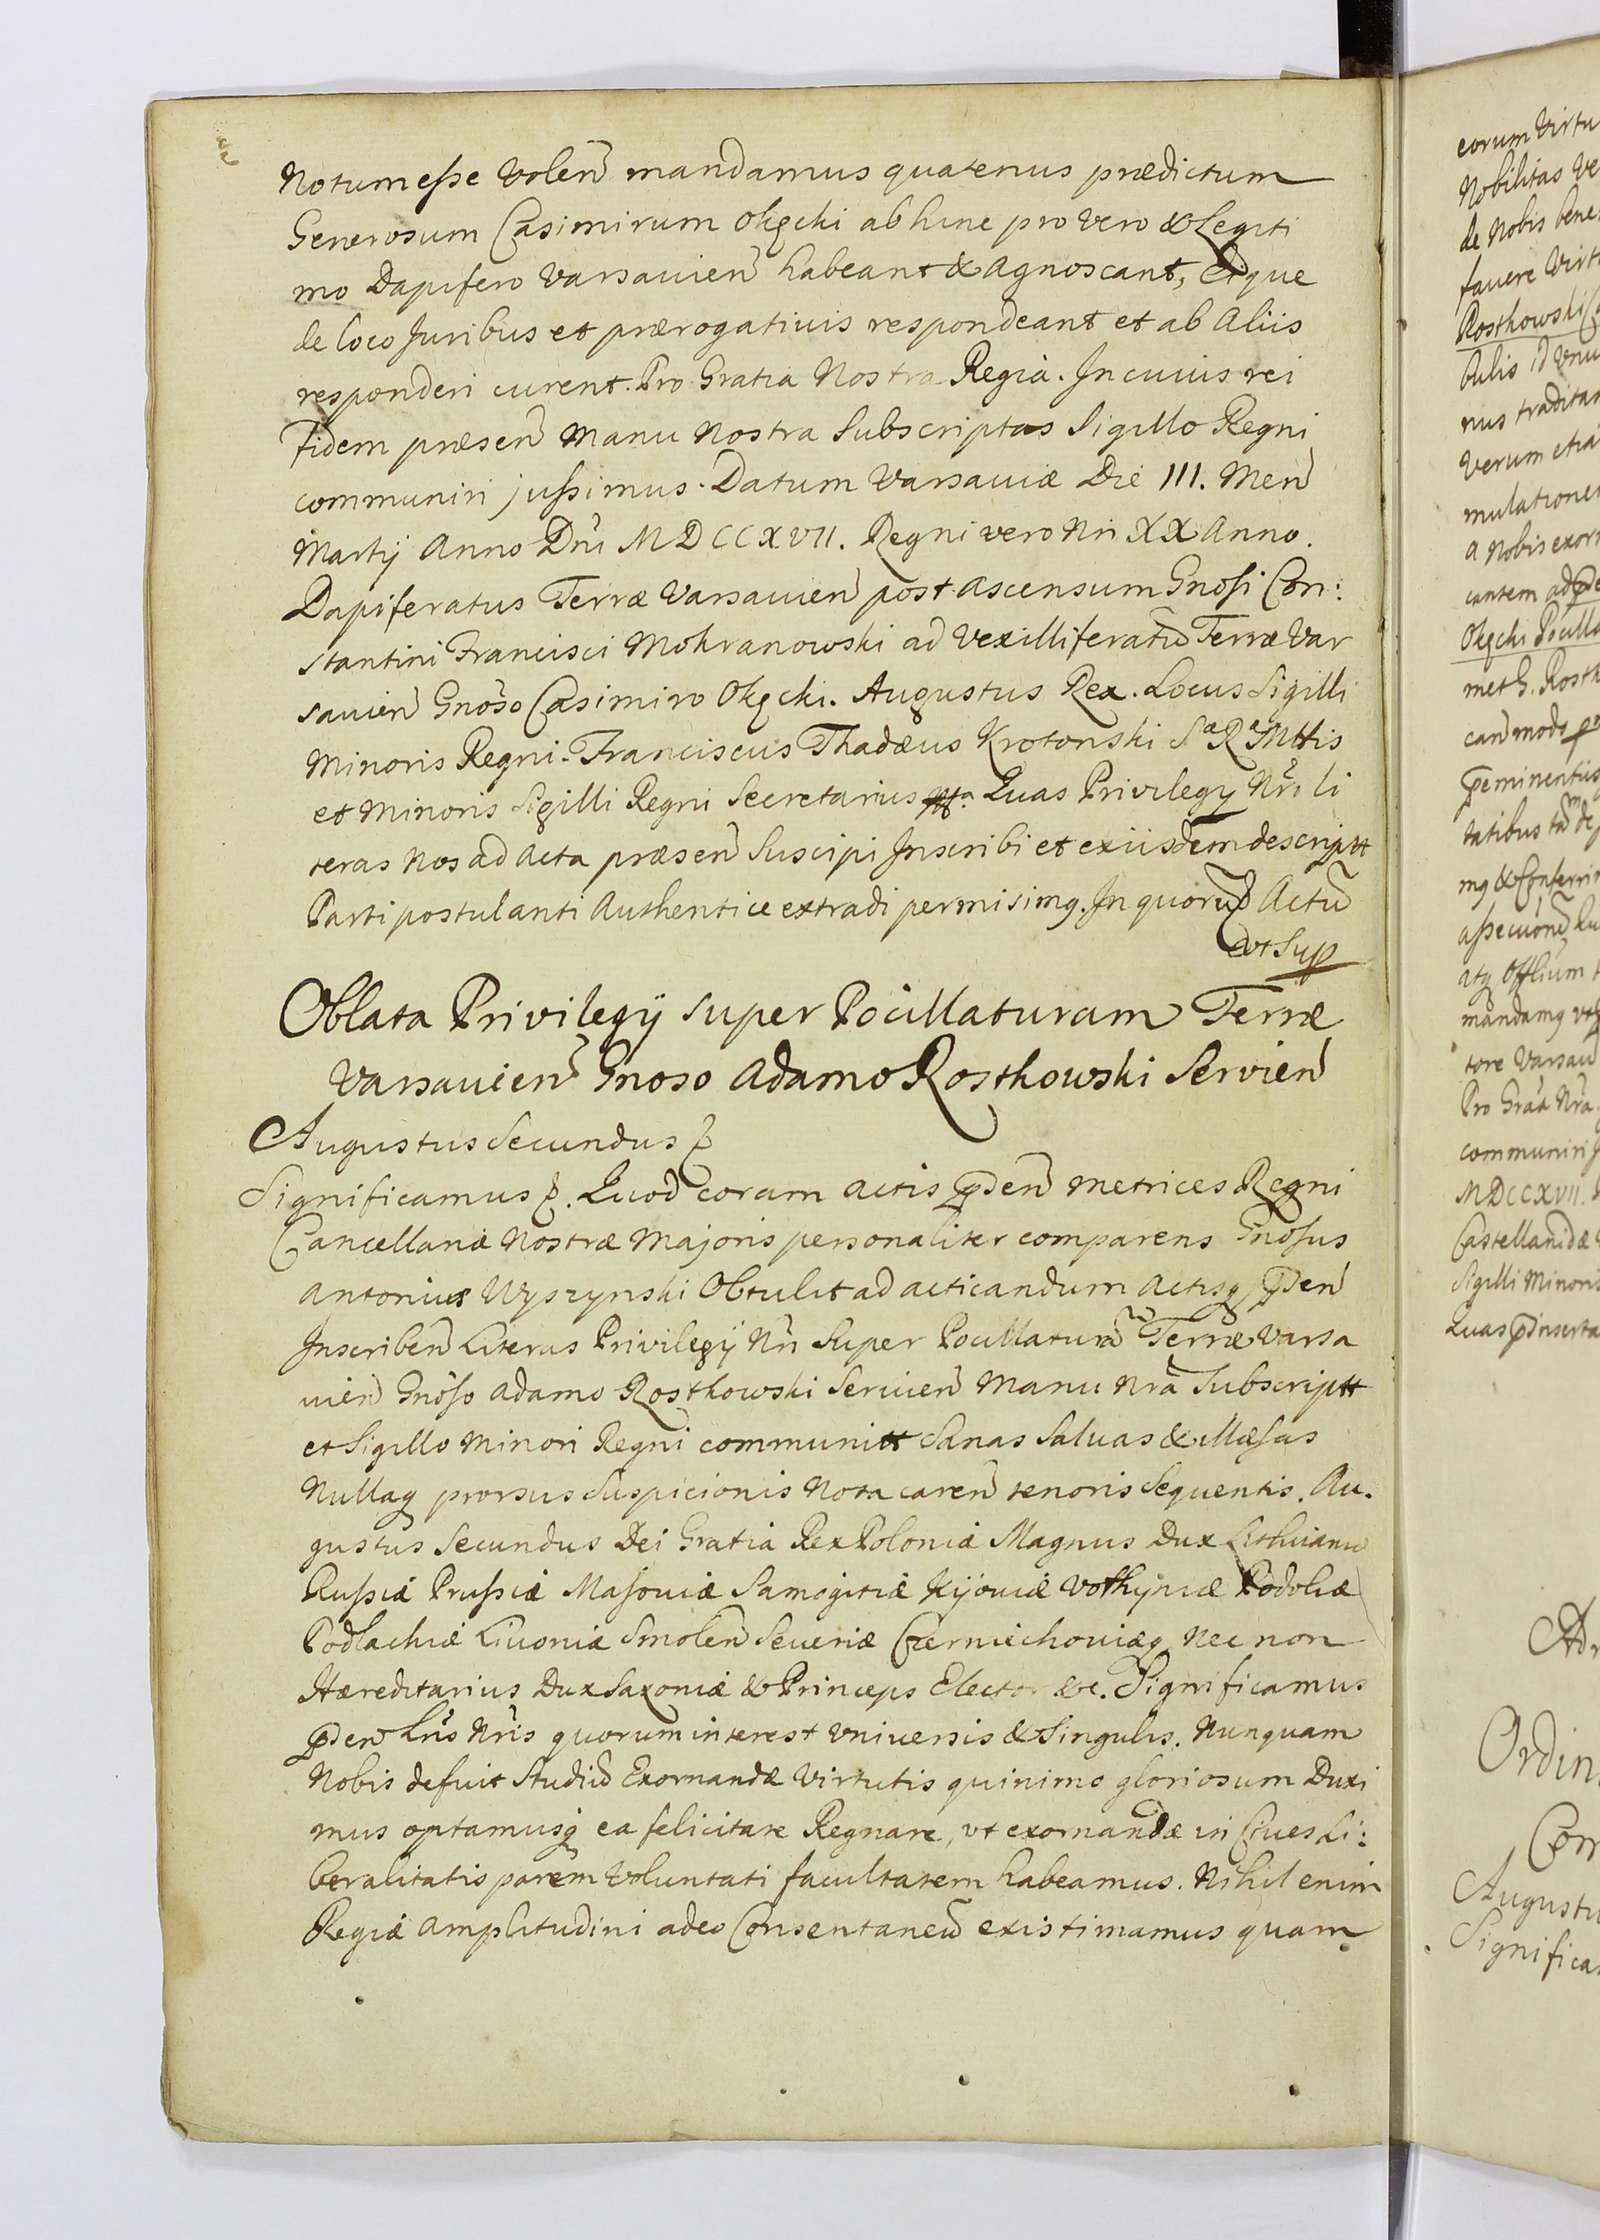 Notum esse volen̄ mandamus quatenus prædictum
Generosum Casimirum Okęcki ab hinc pro vero & Legiti
mo Dapifero Varsauien̄ habeant & agnoscant, Eique
de loco Juribus et prærogatiuis respondeant et ab Aliis
responderi curent. Pro Gratia Nostra Regia. In cuius rei
Fidem præsen̄ Manu Nostra Subscriptas Sigillo Regni
communiri jussimus. Datum Varsauiæ Die III. Men̄
Martÿ Anno Dn̄i MDCCXVII. Regni vero Nri XX Anno.
Dapiferatus Terræ Varsauien̄ post ascensum Gnosi Con:
stantini Francisci Mokranowski ad Vexilliferatū Terræ Var
sauien̄ Gnōso Casimiro Okęcki. Augustus Rex. Locus Sigilli
Minoris Regni. Franciscus Thadæus Krotonski Sæ Ræ Mttis
et Minoris Sigilli Regni Secretarius mp. Quas Privilegÿ Nr̄i li
teras Nos ad Acta præsen̄ Suscipi Inscribi et exiisdem descriptt
Parti postulanti Authentice extradi permisimq. In quorū Actū
ut Sup
Oblata Privilegÿ super Pocillaturam Terræ
Varsauien̄ Gnoso Adamo Rostkowski Servien̄
Augustus Secundus
Significamus. Quod coram actis pden̄ Metrices Regni
Cancellariæ Nostræ Majoris personaliter comparens Gnōsus
Antonius Wyszynski Obtulit ad acticandum actisq pden̄
Inscriben̄ Literas Privilegÿ Nri Super Pocillaturā Terræ Varsa
uien̄ Gnōso Adamo Rostkowski Seruien̄ Manu Nrā Subscriptt
et Sigillo Minori Regni communitt Sanas Saluas & illæsas
Nullaq prorsus Suspicionis Nota caren̄ tenoris Sequentis. Au.
gustus Secundus Dei Gratia Rex Poloniæ Magnus Dux Lithuaniæ
Russiæ Prussiæ Masouiæ Samogitiæ Kijouiæ Volhyniæ Podoliæ
Podlachiæ Liuoniæ Smolen̄ Seueriæ Czerniechouiæq Nec non
Hæreditarius Dux Saxoniæ & Princeps Elector &c. Significamus
pden Lris Nris quorum interest Vniuersis & Singulis. Nunquam
Nobis defuit Studiū Exornandæ Virtutis quinimo gloriosum Duxi
mus optamusq ea felicitate Regnare, ut exornandæ in Ciues Li:
beralitatis parem Voluntati facultatem habeamus. Nihil enim
Regiæ Amplitudini adeo Consentaneū existimamus quam
eorum Virtu
Nobilitas Ve
de Nobis bene
fauere Virt
Rostkowski
nus tradita
Verum etia
mulatione
a Nobis exor
Okęcki Pocilla
met G. Rostk
tore Varsau
Pro Grāa Nrā
communiri
MDCCXVII.
Castellanidæ
Sigilli Minoris
Quas
Ordin
Con
Augustu
Significa